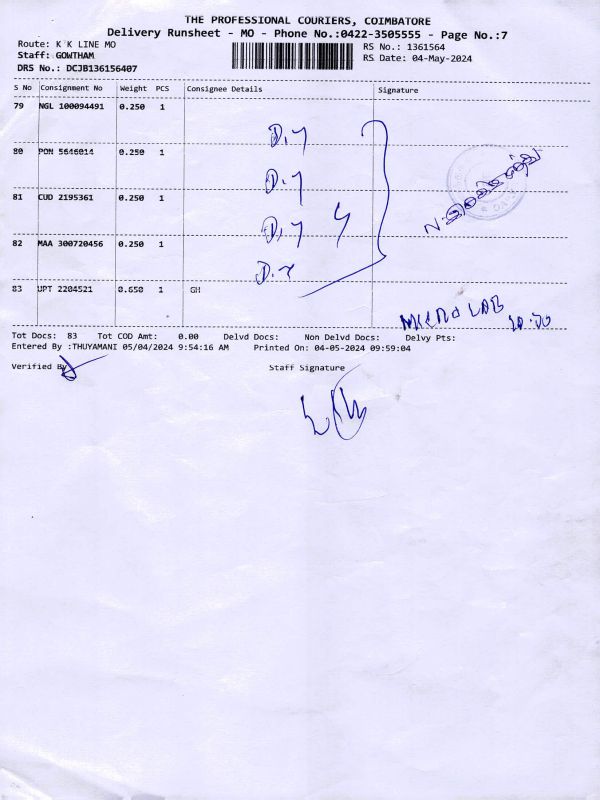 THE PROFESSIONAL COURIERS, COIMBATORE
Delivery Runsheet - MO - Phone No.:0422-3505555 - Page No.:7
Route: K K LINE MO
RS No.: 1361564
Staff: GOWTHAM
RS Date: 04-May-2024
DRS No.: DCJB136156407
S No Consignment No Weight PCS Consignee Details Signature
79 NGL 100094491 0.250 1
D.Y
80 PON 5646014 0.250 1
D.Y
81 CUD 2195361 0.250 1
D.Y 4
82 MAA 300720456 0.250 1
D.Y
83 UPT 2204521 0.650 1 GH
MICRO LAB
Tot Docs: 83 Tot COD Amt: 0.00 Delvd Docs: Non Delvd Docs: Delvy Pts:
Entered By :THUYAMANI 05/04/2024 9:54:16 AM Printed On: 04-05-2024 09:59:04
Verified By Staff Signature